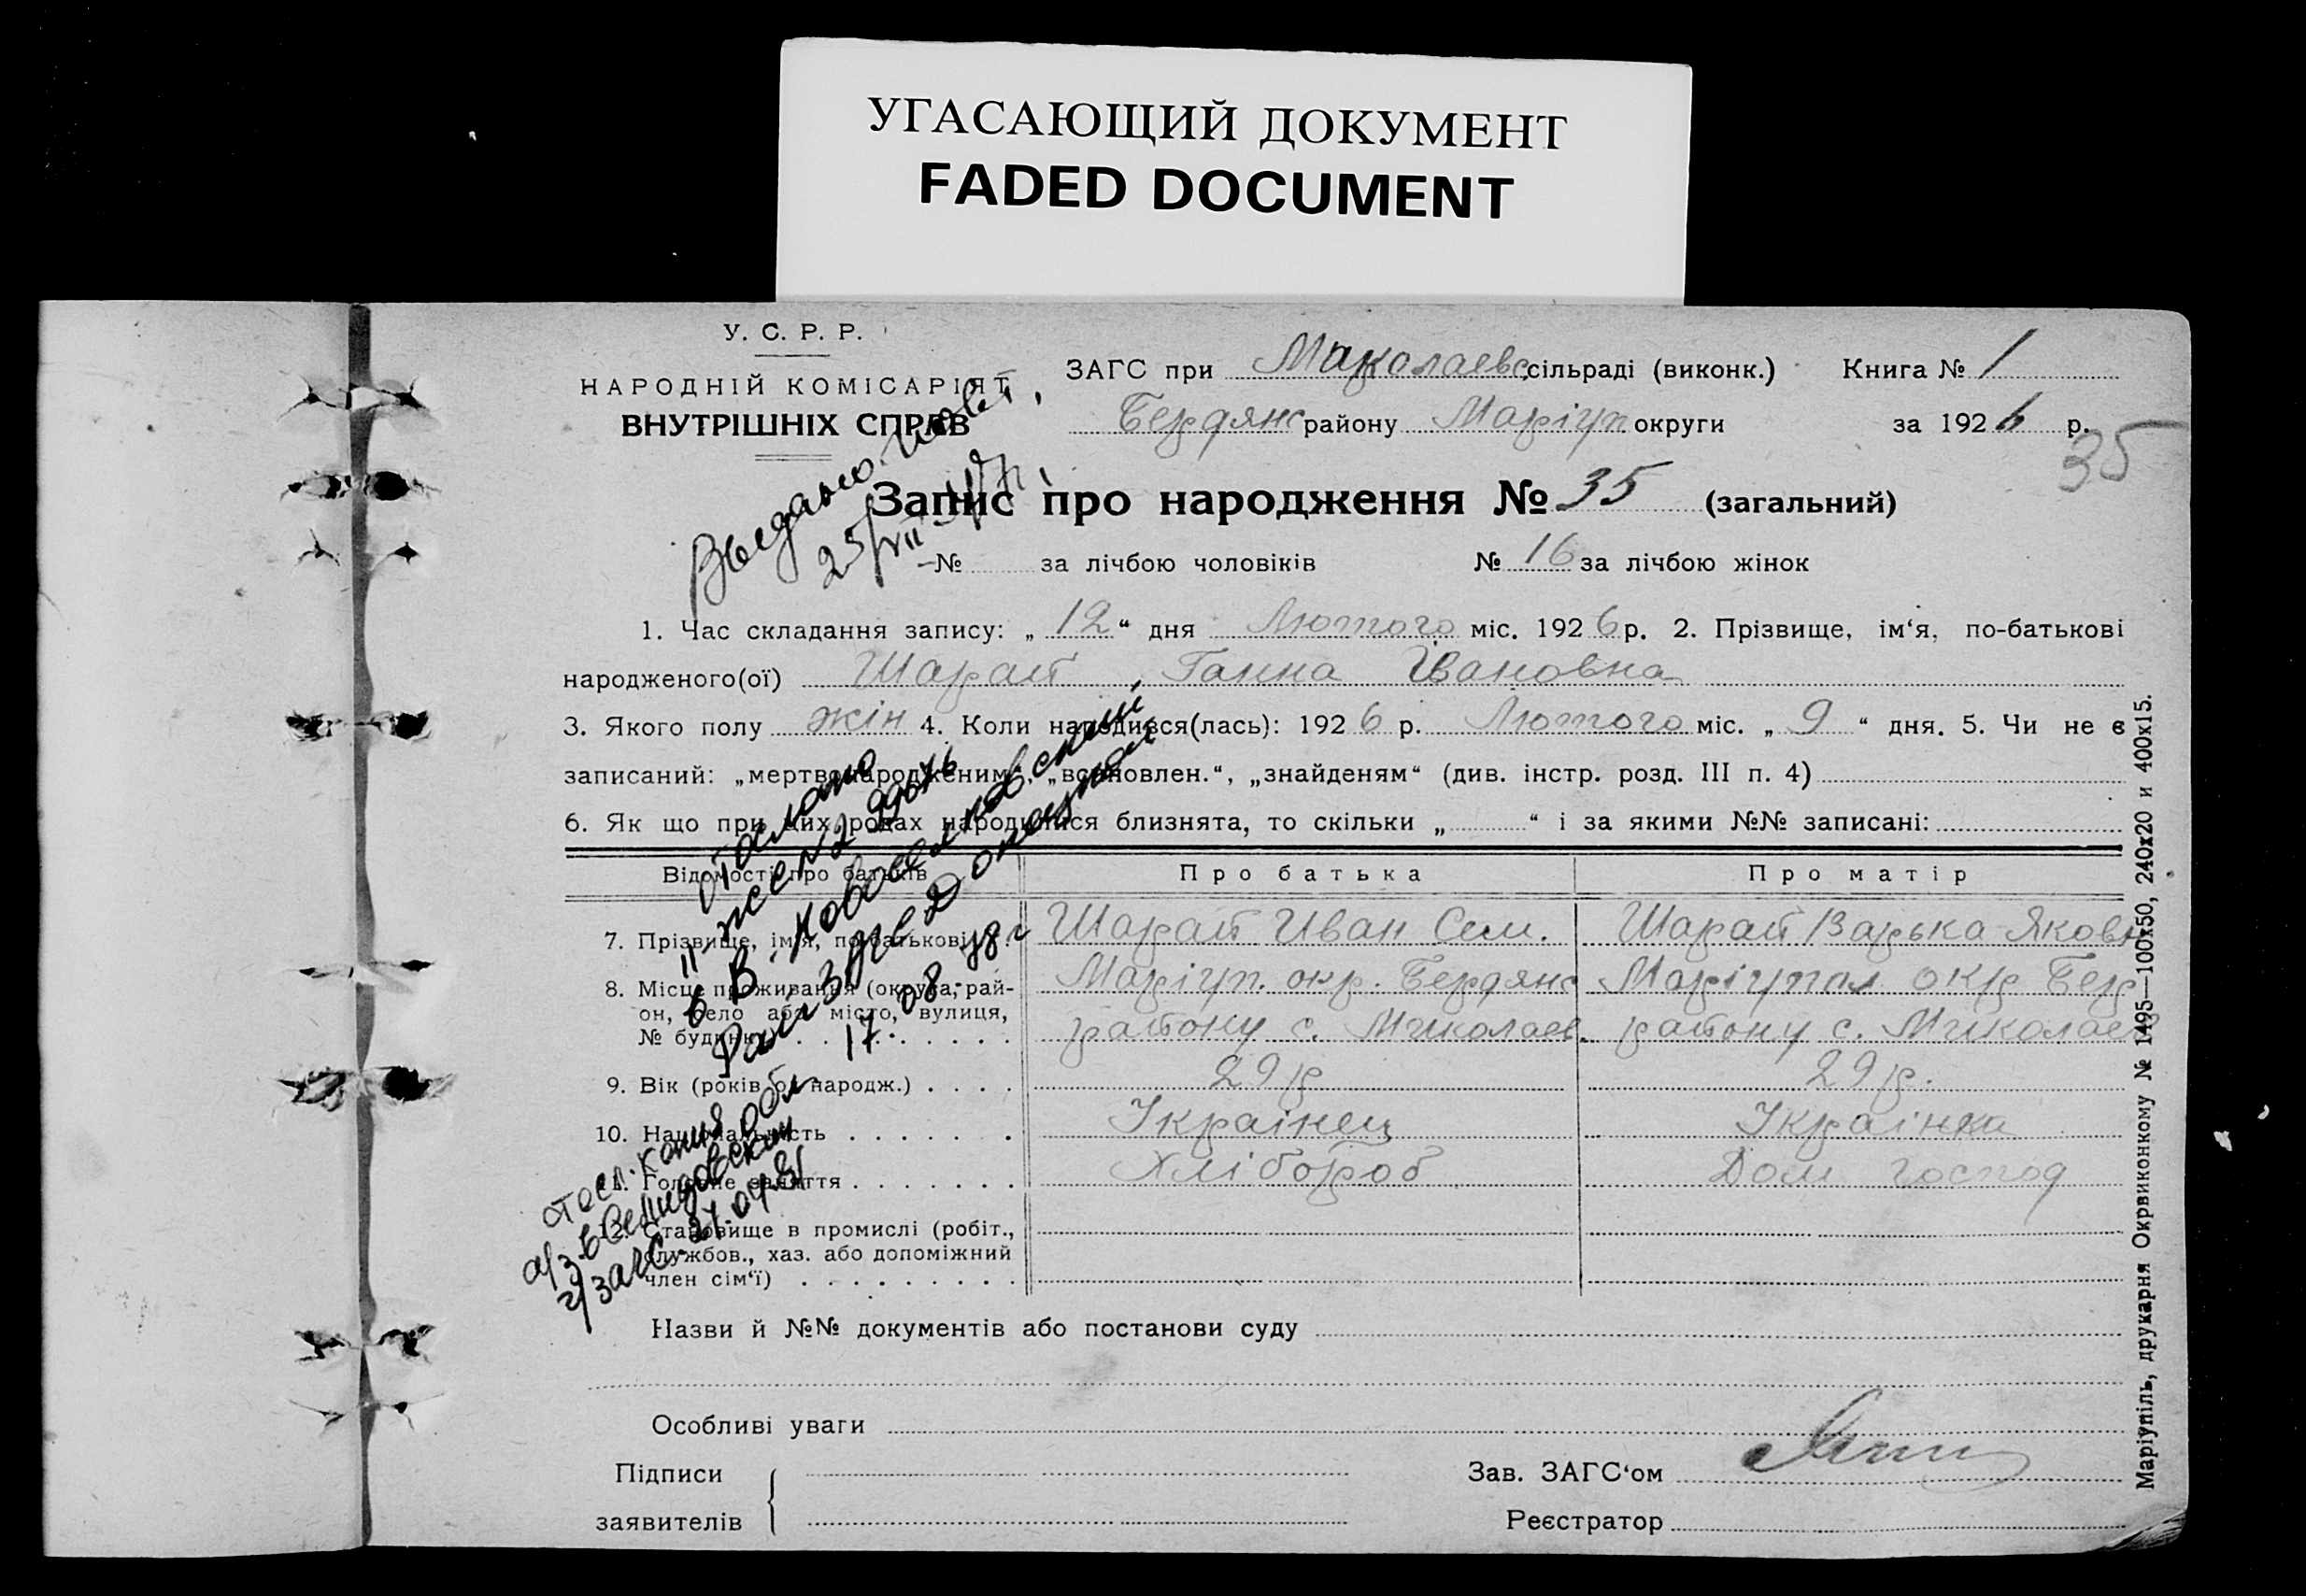 УГАСАЮЩИЙ ДОКУМЕНТ
FADED DOCUMENT
У. С. Р. Р.
НАРОДНІЙ КОМІСАРІЯТ
ВНУТРІШНІХ СПРАВ
ЗАГС при Миколаевс сільраді (виконк.) Книга № 1
Бердянс району Маріуп округи за 1926 р.
35
Запис про народження № 35 (загальний)
№ за лічбою чоловіків № 16 за лічбою жінок
1. Час складання запису: „ 12 “ дня Лютого міс. 1926 р. 2. Прізвище, ім‘я, по-батькові
народженого(ої) Шарай, Ганна Івановна
3. Якого полу жін 4. Коли народився(лась): 1926 р. Лютого міс. „ 9 “ дня. 5. Чи не є
записаний: „мертвонародженим“, „встановлен.“, „знайденям“ (див. інстр. розд. III п. 4)
6. Як що при цих родах народилися близнята, то скільки „ “ і за якими №№ записані:
Відомості про батьків Про батька Про матір
7. Прізвище, ім‘я, по-батькові Шарай Иван Сем. Шарай Варька Яковн
8. Місце проживання (округа, рай- Маріуп. окр. Бердянс Маріупол окр Бер
он, село або місто, вулиця, району с. Миколаев. району с. Миколаев
№ будинку)
9. Вік (років од народж.) 29 р 29 р.
10. Національність Українец Українка
11. Головне заняття Хлібороб Дом господ
12. Становище в промислі (робіт.,
службов., хаз. або допоміжний
член сім‘ї)
Назви й №№ документів або постанови суду
Особливі уваги
Підписи
заявителів
Зав. ЗАГС‘ом
Реєстратор
Маріупіль, друкарня Окрвиконкому № 1495—100х50, 240х20 и 400х15.
Выдано
25/VII
17.08.48 г